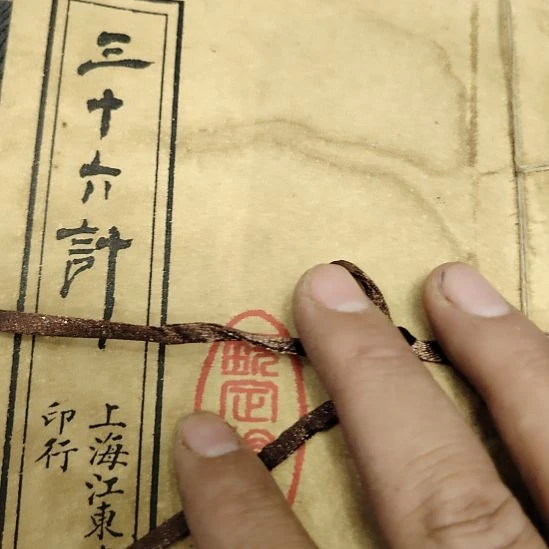 三十六計
上海江東
印行